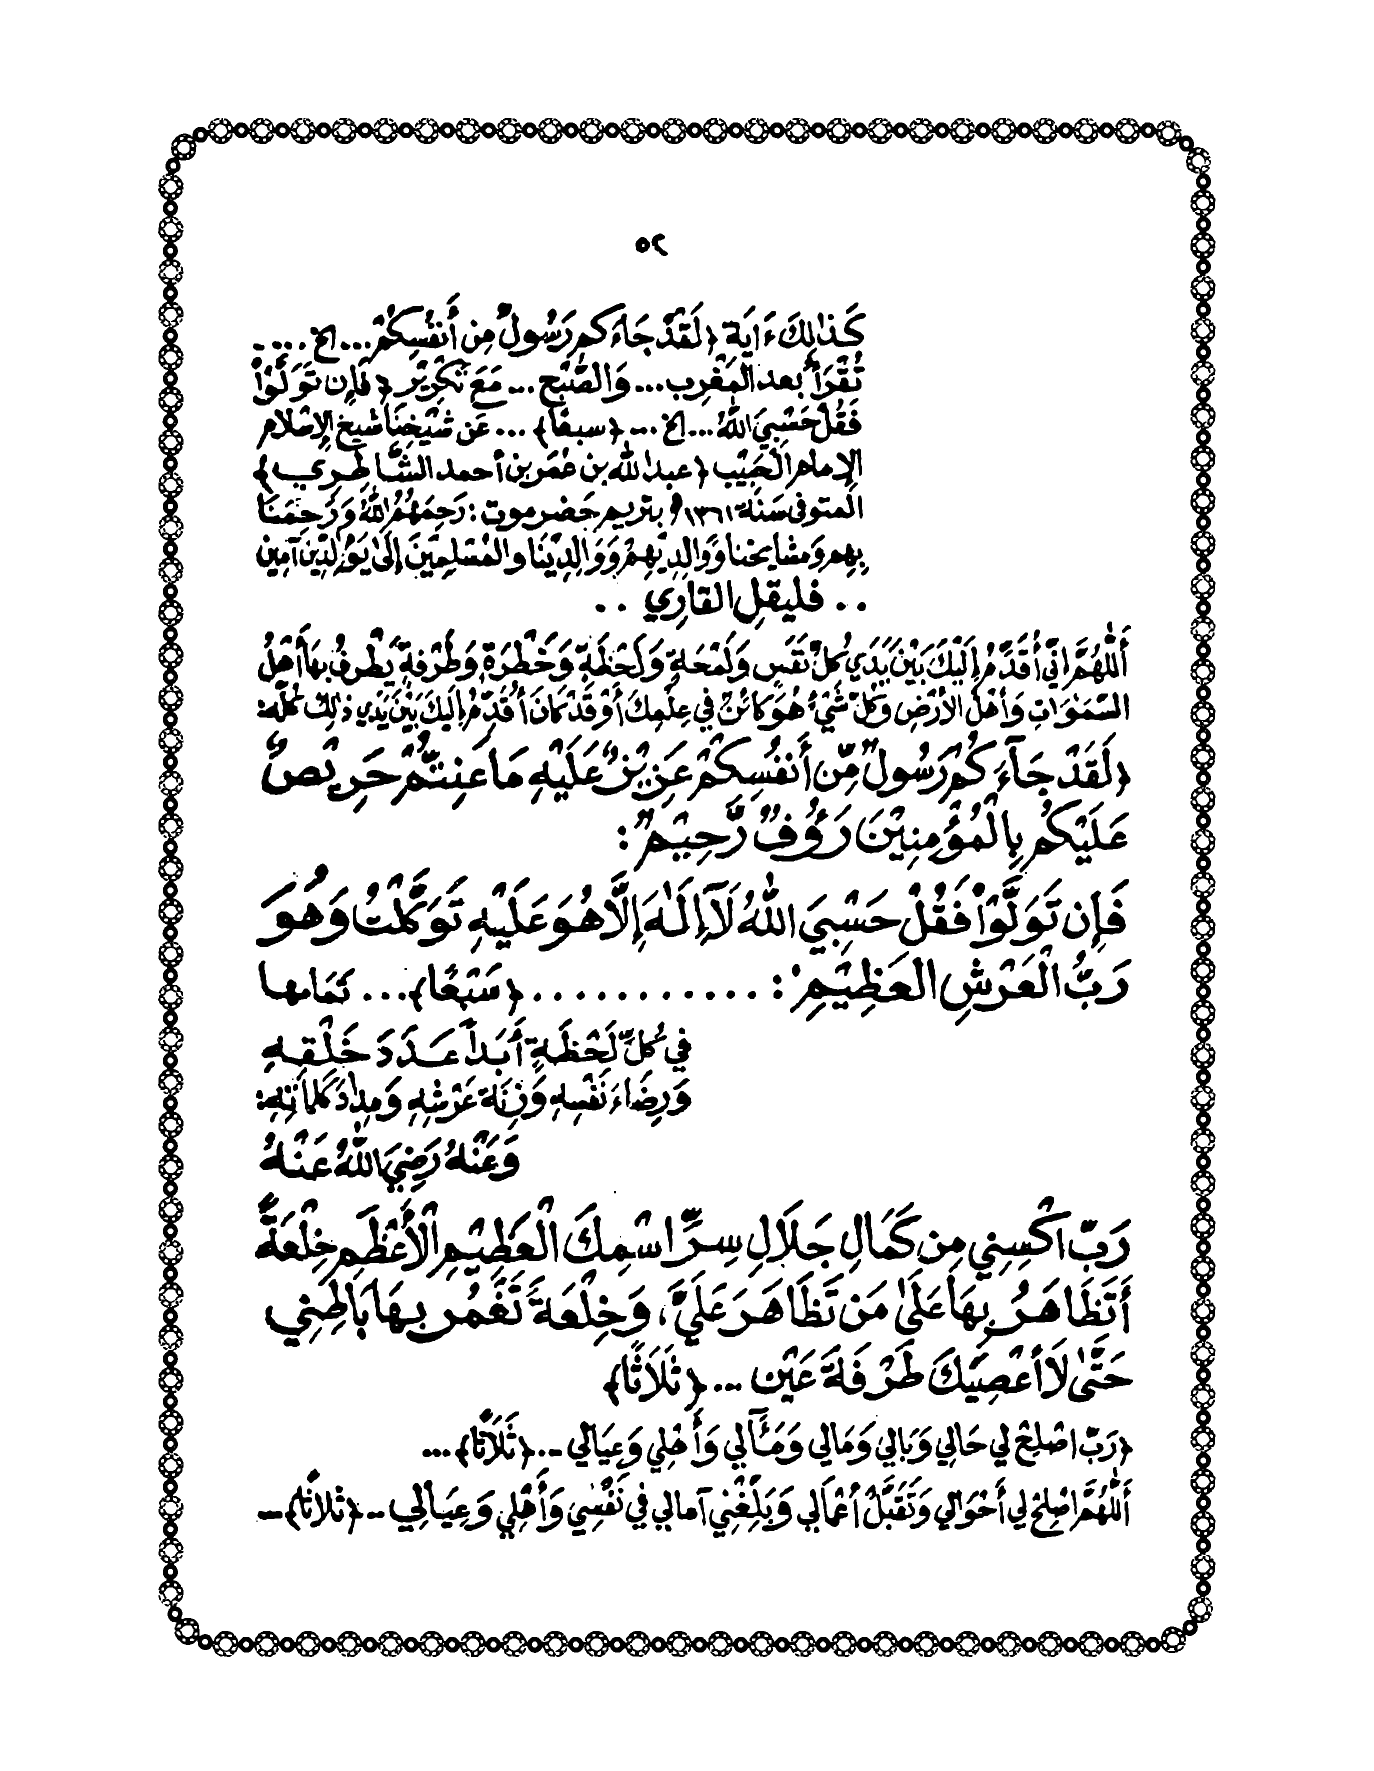 ٥٢
كَذٰلِكَ ءَايَة ﴿لَقَدْ جَاءَكم رَسُولٌ مِن أَنفُسِكُمْ... الخ ....
تُقْرَأ بعد المَغْرِب... وَالصُّبْح ... مَعَ تَكْرِيْر ﴿فَإِن تَوَلَّوْاْ
فَقُلْ حَسْبِيَ اللهُ... الخ ... ﴿سبعًا﴾ ... عَن شَيْخِنَا شيخ الإسْلَام
الإمام الحَبِيْب ﴿عبدالله بن عُمَر بن أحمد الشَّاطِرِي﴾
المتوفى سَنَة ١٣٦١ﻫ بتريم حَضرموت : رَحِمَهُمُ اللهُ وَرَحِمَنَا
بِهِم وَمشايخنا وَوَالِدِيْهِمْ وَوَالِدِيْنَا والمُسْلِمِيْنَ إِلَىٰ يَوْمِ الدِّيْن آمِيْن
.. فليقل القَارِي ..
أَللّٰهُمَّ إِنِّي أُقَدِّمُ إِلَيْكَ بَيْنَ يَدَي كُلِّ نَفَسٍ وَلَمْحَةٍ وَلَحْظَةٍ وَخَطْرَةٍ وَطَرْفَةٍ يَطْرِفُ بِهَا أَهْلُ
السَّمٰوَاتِ وَأَهْلُ الأَرْضِ وَكُلِّ شَيْءٍ هُوَ كَائِنٌ فِي عِلْمِكَ أَوْ قَدْ كَانَ أُقَدِّمُ إِلَيْكَ بَيْنَ يَدَي ذٰلِكَ كُلِّهِ :
﴿لَقَدْ جَآءَكُمْ رَسُولٌ مِّنْ أَنفُسِكُمْ عَزِيْزٌ عَلَيْهِ مَا عَنِتُّمْ حَرِيْصٌ
عَلَيْكُم بِالْمُؤْمِنِيْنَ رَؤُوفٌ رَّحِيْمٌ :
فَإِن تَوَلَّوْاْ فَقُلْ حَسْبِيَ اللهُ لَآ إِلَـٰهَ إِلَّا هُوَ عَلَيْهِ تَوَكَّلْتُ وَهُوَ
رَبُّ الْعَرْشِ الْعَظِيْمِ : ........... ﴿سَبْعًا﴾ ... تَمَامها
فِي كُلِّ لَحْظَةٍ أَبَداً عَدَدَ خَلْقِهِ
وَرِضَاءَ نَفْسِهِ وَزِنَةَ عَرْشِهِ وَمِدَادَ كَلِمَاتِهِ :
وَعَنْهُ رَضِيَ اللهُ عَنْهُ
رَبِّ اكْسِنِي مِن كَمَالِ جَلَالِ سِرِّ اسْمِكَ الْعَظِيْمِ الْأَعْظَمِ خِلْعَةً
أَتَظَاهَرُ بِهَا عَلَىٰ مَن تَظَاهَرَ عَلَيَّ ، وَخِلْعَةً تَغْمُر بِهَا بَاطِنِي
حَتَّىٰ لَا أَعْصِيَكَ طَرْفَةَ عَيْن ... ﴿ثَلَاثًا﴾
﴿رَبِّ اصْلِحْ لِي حَالِي وَبَالِي وَمَالِي وَمَـَٔالِي وَأَهْلِي وَعِيَالِي ... ﴿ثَلَاثًا﴾ ...
أَللّٰهُمَّ اصْلِحْ لِي أَحْوَالِي وَتَقَبَّلْ أَعْمَالِي وَبَلِّغْنِي آمَالِي فِي نَفْسِي وَأَهْلِي وَعِيَالِي ... ﴿ثَلَاثًا﴾ ...